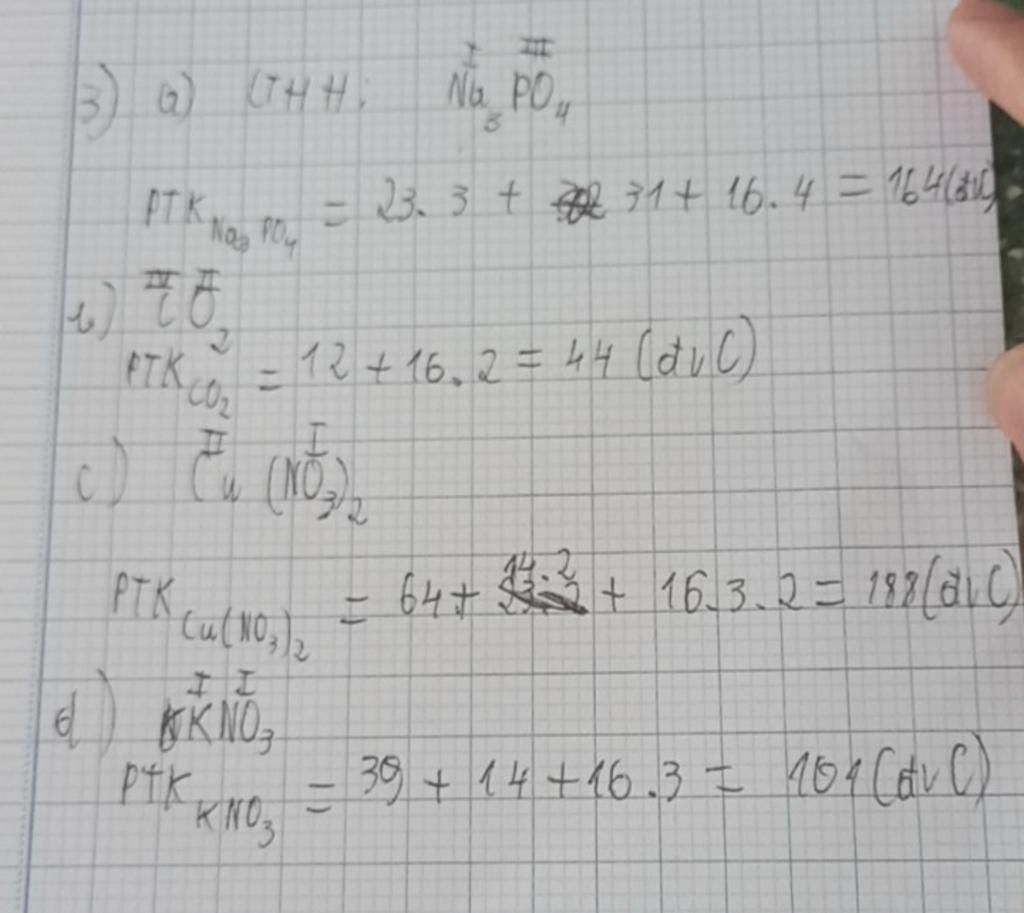 3) a) CTHH: Na₃PO₄
I III
PTK Na₃PO₄ = 23.3 + 31 + 16.4 = 164(đvC)
b) CO₂
IV II
PTK CO₂ = 12 + 16.2 = 44 (đvC)
c) Cu(NO₃)₂
II I
PTK Cu(NO₃)₂ = 64 + 14.2 + 16.3.2 = 188(đvC)
d) KNO₃
I I
PTK KNO₃ = 39 + 14 + 16.3 = 101(đvC)